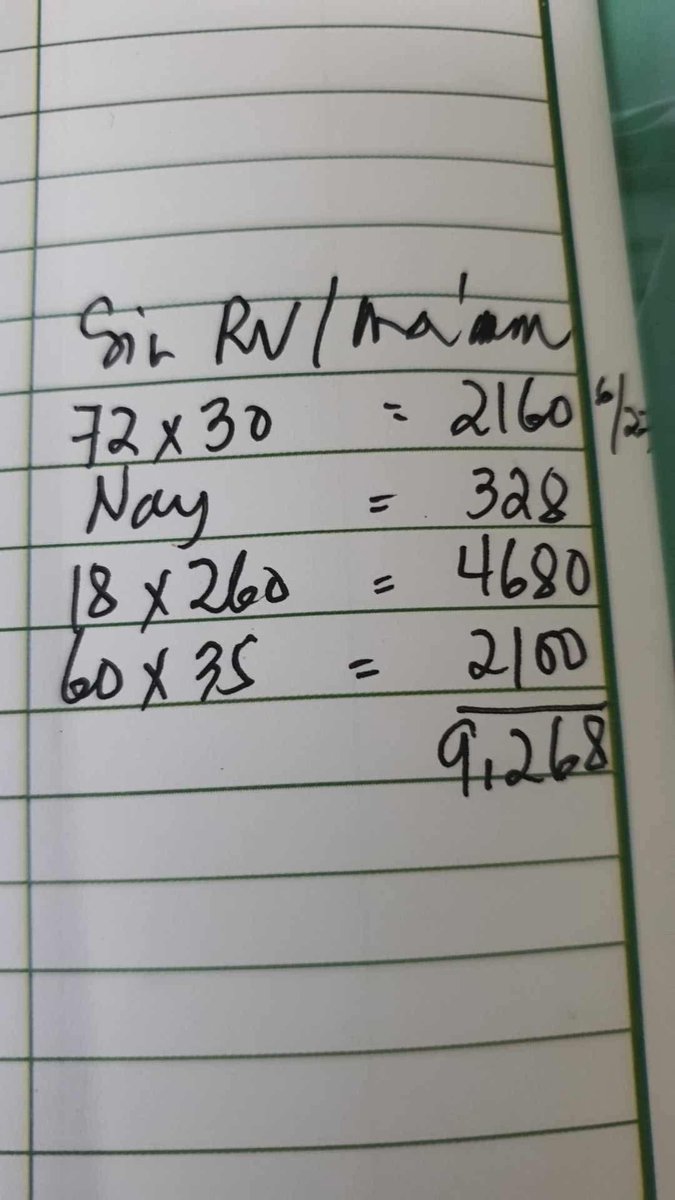 Sir RV / Ma'am
72 x 30 = 2160
Nay = 328
18 x 260 = 4680
60 x 35 = 2100
9,268